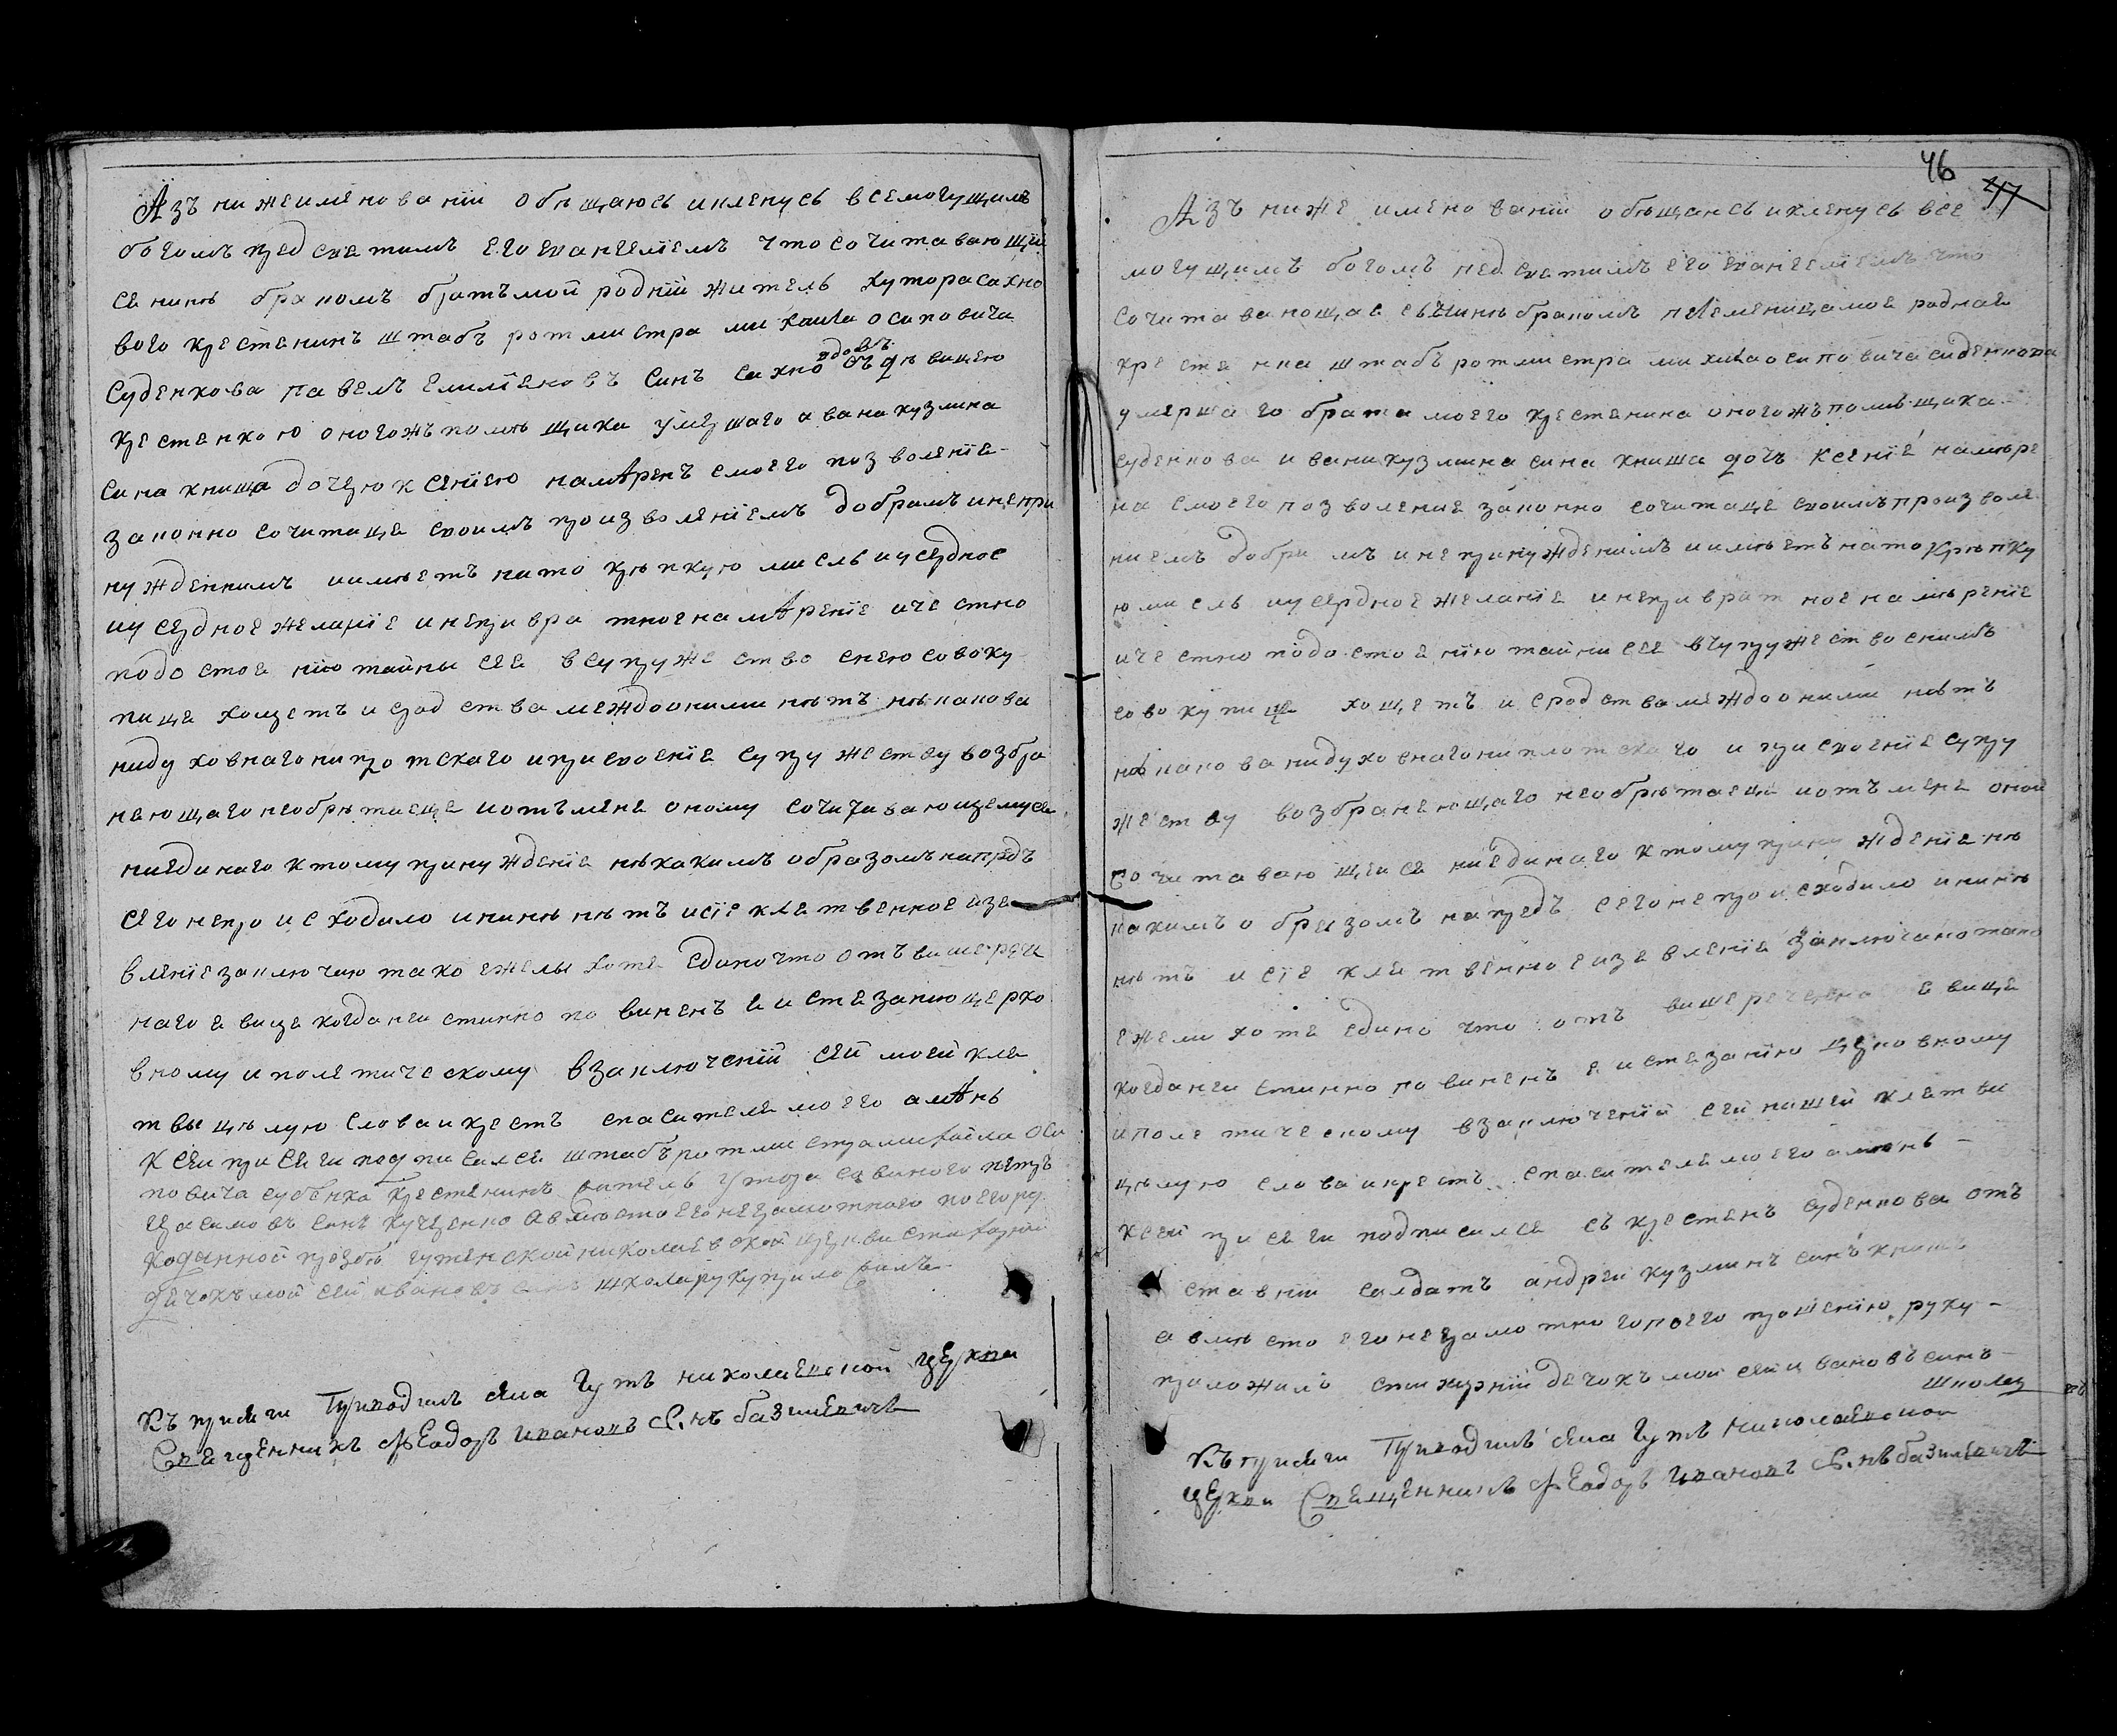 Азъ нижеименованїй обѣщаюсь икленусь всемогущимъ
богомъ пред светимъ его евангелїемъ что сочитавающїй
се нинѣ бракомъ братъ мой роднїй житель хутора сахно
вого крестенинъ штабъ ротмистра михаила осиповича
суденкова павелъ емилїеновъ синъ сахно вдовъ съ дѣвицею
крестенкою оногожъ помѣщика умершаго ивана кузмина
сина книша дочерю ксенїею намѣренъ смоего позволенїе
законно сочитаце своимъ произволенїемъ добримъ инепри
нужденнимъ иимѣетъ нато крѣпкую мисль иусердное
иусердное желанїе инепривратное намѣренїе ичестно
подостоенїю тайны сее всупружество снею совоку
пице хощетъ исродства междооними нѣтъ нѣпакова
нидуховнаго ниплотскаго иприсвоенїе супружеству возбра
неющаго необрѣтаеце иотъмене оному сочитавающемусе
ниединаго ктому принужденїе нѣкакимъ образомъ напредъ
сего непроисходило ининѣ нѣтъ исїе клетвенное изе
вленїе заключаю тако ежелы хоте едино что отъ вишереч
наго евице когда неистинно повиненъ е истезанию церко
вному иполетическому взаключенїй сей моей кле
твы цѣлую слова икрестъ спасителе моего амѣнь
Ксей присеги подписалсе штабъ ротмистра михайла Оси
повича суденка крестенинъ житель
синъ кущенко авмѣсто его неграмотного поего ру
коданной прозбѣ гутенской николаевской церкви стихарнїй
дечокъ мойсей ивановъ синъ школаруку приложилъ
Къ присеги Приводилъ села Гутъ николаевской церкви
Свещенникъ Феодоръ Ивановъ С.нъ базилевичъ
46
47
Азъ ниже именованїй обѣщаюсь икленусь все
могущимъ богомъ пред светимъ его евангелїемъ что
сочитавающаесе нинѣ бракомъ племеница мое родная
крестенка штабъ ротмистра михаила осиповича суденкова
умершаго брата моего крестенина оногожъ помѣщика
суденкова ивана кузмина сина книша дочъ ксенїе намѣре
на смоего позволение законно сочитаце своимъ произволе
ниемъ добримъ инепринужденимъ иимѣетъ нато крѣпку
ю мисль иусердное желанїе инепривратное намѣренїе
ичестно подостоенїю тайни сее всупружество снимъ
совокупице хощетъ и сродства междоонимы нѣтъ
нѣпакова нидуховнаго ниплотскаго и присвоенїе супру
жеству возбранеющаго необрѣтаеце иотъ мене оной
сочитавающейсе ниединаго ктому принужденїе нѣ
какимъ образомъ напредъ сего непроисходило ининѣ
нѣтъ и сїе клетвенное изевленїе заключаю тако
ежели хоте едино что отъ вишереченаго евице
когда неистинно повиненъ е истезанїю церковному
иполетическому взаключенїй сей нашей клетви
цѣлую слова икрестъ спасителе моего амѣнь
ксей присеги подписалсе съ крестенъ суденкова отъ
ставнїй салдатъ андрей кузминъ синъ книшъ
авмѣсто его неграмотного поего прошенїю руку
приложилъ стихарнїй дечокъ мойсей ивановъ синъ
школар
Къ присеги Приводилъ села Гутъ николаевской
церкви Свещенникъ Феодоръ Ивановъ С.нъ базилевичъ